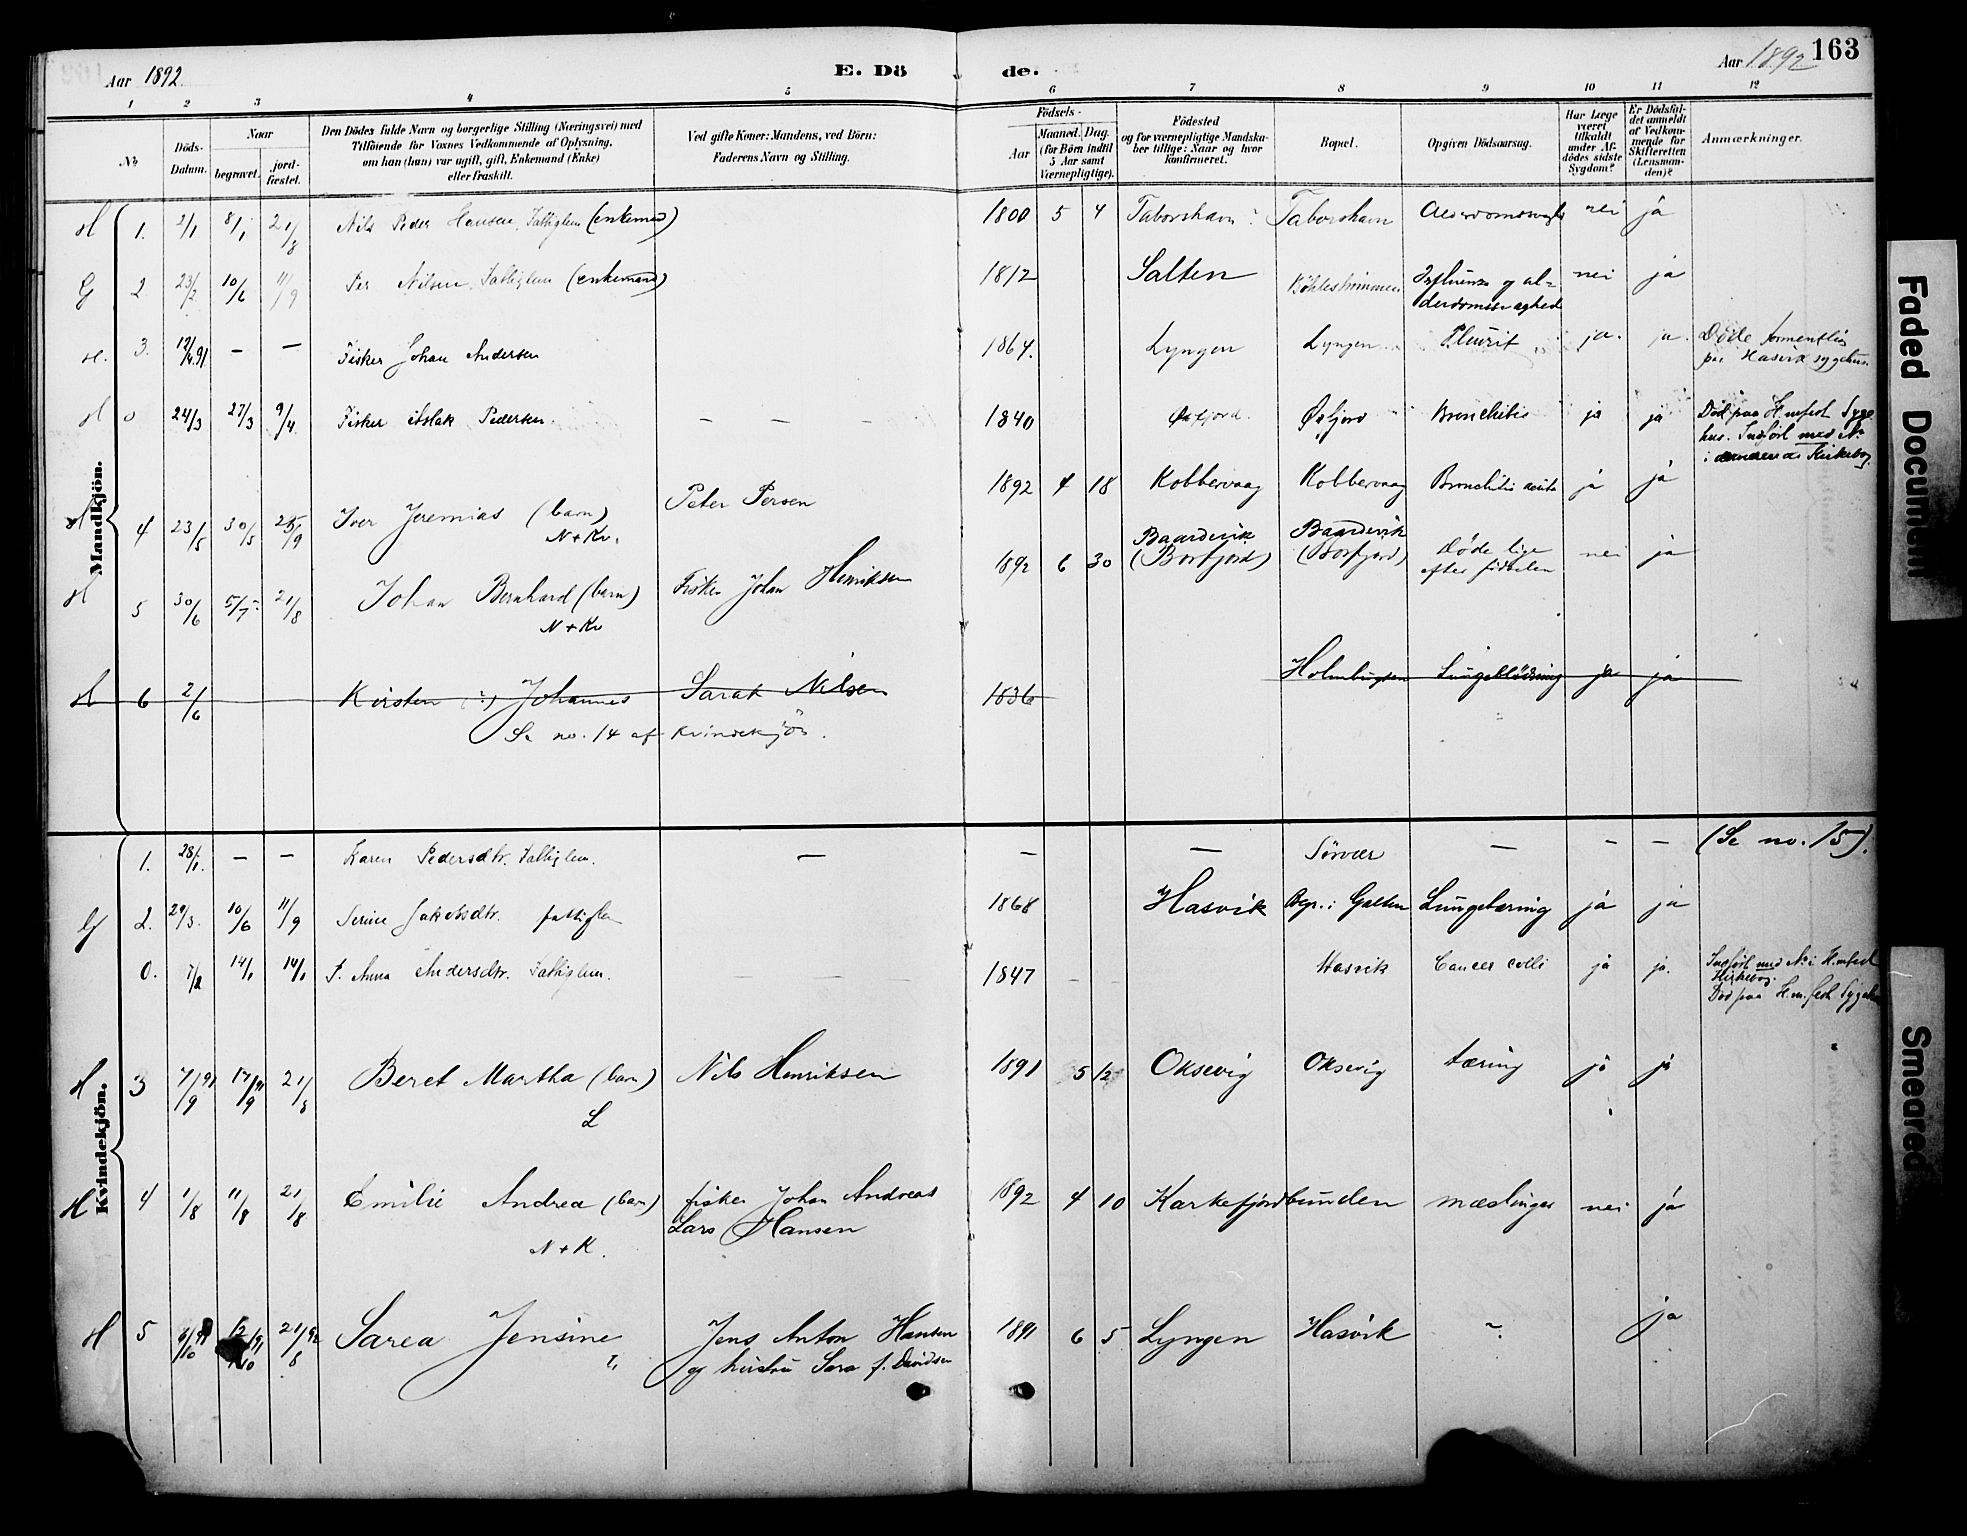 Aar 1892.
E. Dö
de.
Aar 1892
163
1 2 3 4 5 6 7 8 9 10 11 12
No
Döds-
Datum.
Naar
begravet.
jord-
fæstet.
Den Dödes fulde Navn og borgerlige Stilling (Næringsvei) med
Tilföiende for Voxnes Vedkommende af Oplysning,
om han (hun) var ugift, gift, Enkemand (Enke)
eller fraskilt.
Ved gifte Koner: Mandens, ved Börn:
Faderens Navn og Stilling.
Födsels-
Aar
Maaned. Dag.
(for Börn indtil
5 Aar samt
Værnepligtige).
Födested
og for værnepligtige Mandska-
ber tillige: Naar og hvor
konfirmeret.
Bopæl.
Opgiven Dödsaarsag.
Har Læge
været
tilkaldt
under Af-
dödes sidste
Sygdom?
Er Dödsfal-
det anmeldt
af Vedkom-
mende for
Skifteretten
(Lensman-
den)?
Anmærkninger.
Mandkjön.
H 1. 2/1 8/1 21/8 Nils Peder Hansen, Fattiglem (enkemd) 1800 5 4 Taborshavn Taborshavn nei ja
G 2 23/2 10/6 11/9 Per Nilsen Fattiglem (enkemand) 1812 Salten Influensa og al-
derdomssvaghed nei ja
H. 3. — — Fisker Johan Andersen 1864. Lyngen Lyngen Pleurit ja. ja. Døde formentlig
paa Hasvik sygehus
H 0 24/3 27/3 9/4 Fisker Aslak Pedersen. — — — 1840 Øxfjord. Øxfjord Bronchitis ja ja Död paa H.mfest Syge
hus. Indført med No
i Kirkebog.
H 4 23/5 30/5 25/9 Iver Jeremias (barn) Peter Persen 1892 4 18 Kobbervaag Kobbervaag Bronchitis acuta ja ja
N+Kv.
H 5 30/6 5/7 21/8 Johan Bernhard (barn) Fisker Johan Henriksen 1892 6 30 Baardvik
(Borfjord) Baardvik
(Borfjord) Døde lige
efter fødselen nei ja
N+Kv
H 6 2/6 Kirsten (?) Johannes Sarak Nilsen 1836 Lungeblødning ja ja
Se no. 14 af Kvindekjön.
Kvindekjön.
1. 28/1. — — Karen Pedersdtr. Fattiglem. — — — Sørvær — — — (Se no. 15).
G 2. 29/3. 10/6 11/9 Serine Jakobsdtr. fattiglem 1868 Hasvik Begr. i Galten Lungetæring ja ja
0. 14/1 14/1 Anna Andersdtr. Fattiglem. — — — 1847 - - Hasvik Cancer colli ja ja. Indført med No i H.mfest
Kirkebog.
Död paa H.m.fest Sygehus
H 3 7/9 91 17/9 91 21/8 Beret Martha (barn) Nils Henriksen 1891 5 12 Oksevig Oksevig tæring ja ja
L
H 4 1/8 11/8 21/8 Emilie Andrea (barn) fisker Johan Andreas
Lars Hansen 1892 4 10 Karkefjordbunden mæslinger nei ja
N+K.
H 5 6/10 91 12/10 91 21/8 92 Sarea Jensine Jens Anton Hansen
og hustru Sara f. Davidsen 1891 6 5 Lyngen Hasvik ?. ja
Faded Document
Smeared